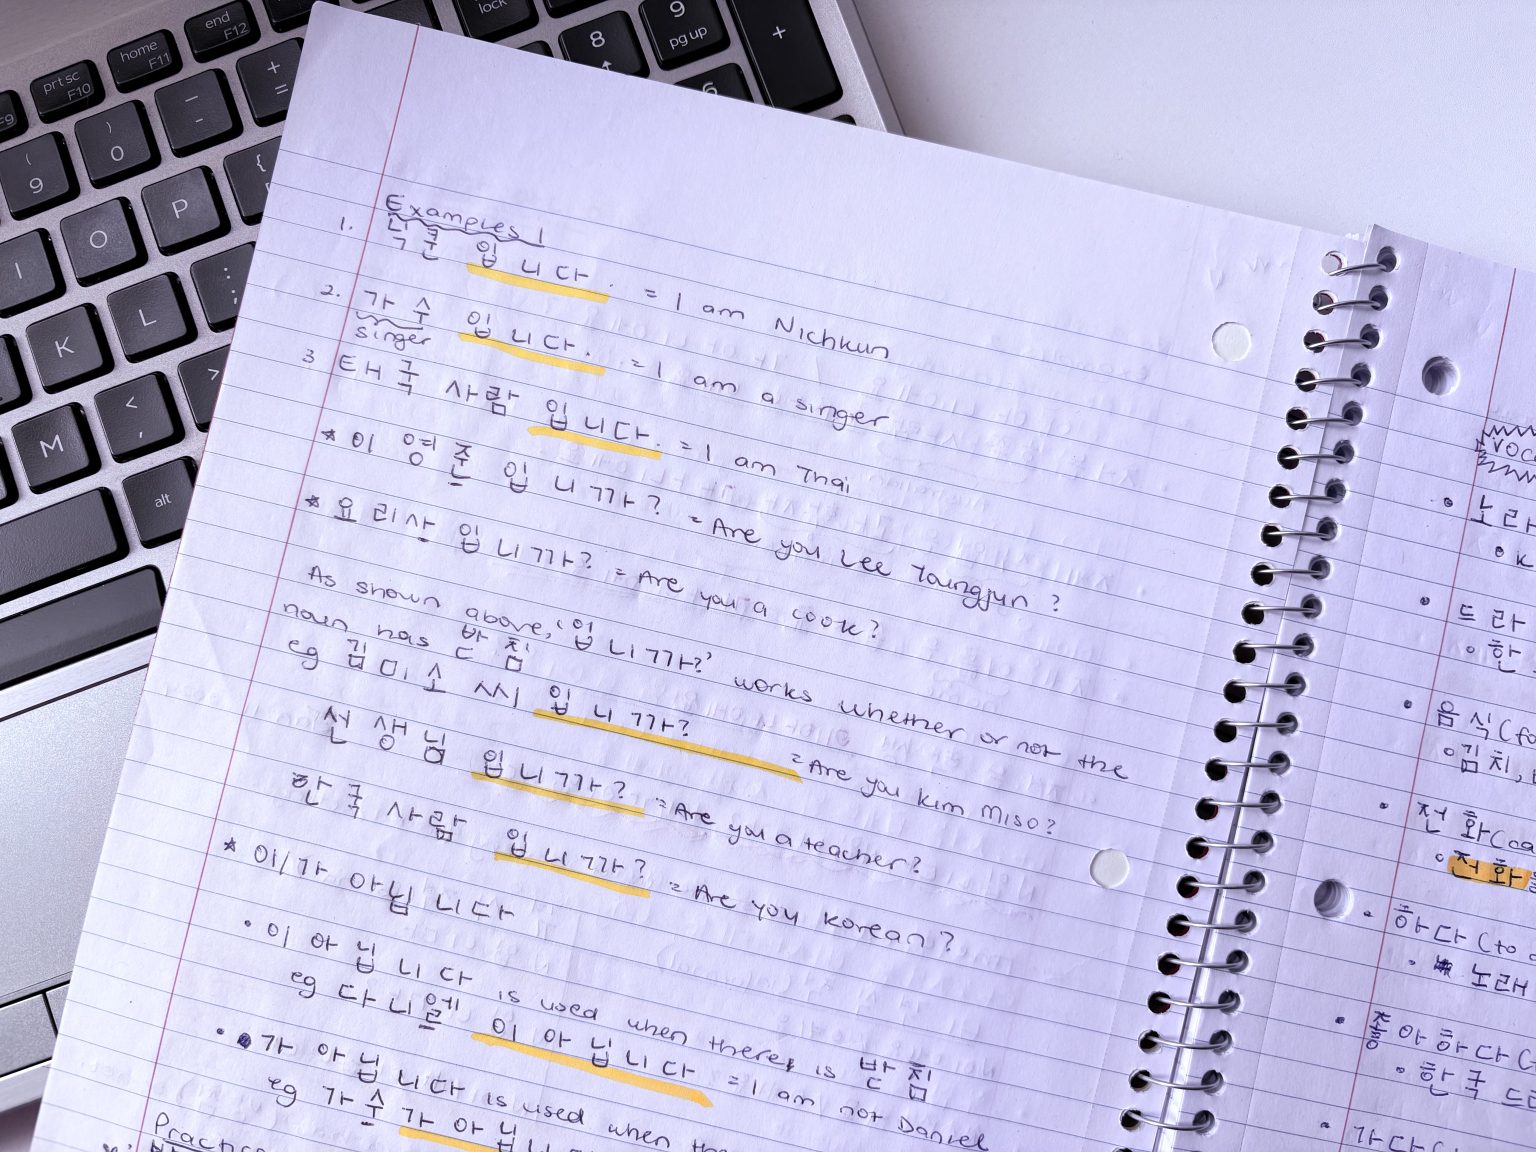 lock
end
F12
home
F11
prt sc
F10
F9
8
9
pg up
+
6
+
=
_
-
)
0
(
9
{
P
O
I
:
;
L
K
>
<
,
M
alt
Examples 1
1. 닉쿤 입니다. = I am Nichkun
2. 가수 입니다. = I am a singer
singer
3 태국 사람 입니다. = I am Thai
* 이 영준 입니까? = Are you Lee Youngjun?
* 요리사 입니까? = Are you a cook?
As shown above, '입니까?' works whether or not the
noun has 받침
eg 김미소 씨 입니까? = Are you Kim Miso?
선생님 입니까? = Are you a teacher?
한국 사람 입니까? = Are you Korean?
* 이/가 아닙니다
• 이 아닙니다 is used when there is 받침
eg 다니엘 이 아닙니다 = I am not Daniel
• 가 아닙니다 is used when
eg 가수 가 아닙니
Practice
• 노라
• K
• 드라
• 한
• 음식 (fo
• 김치,
• 전화 (ca
• 전화
• 하다 (to
• 노래
• 좋아하다 (
• 한국 드
• 가다 (